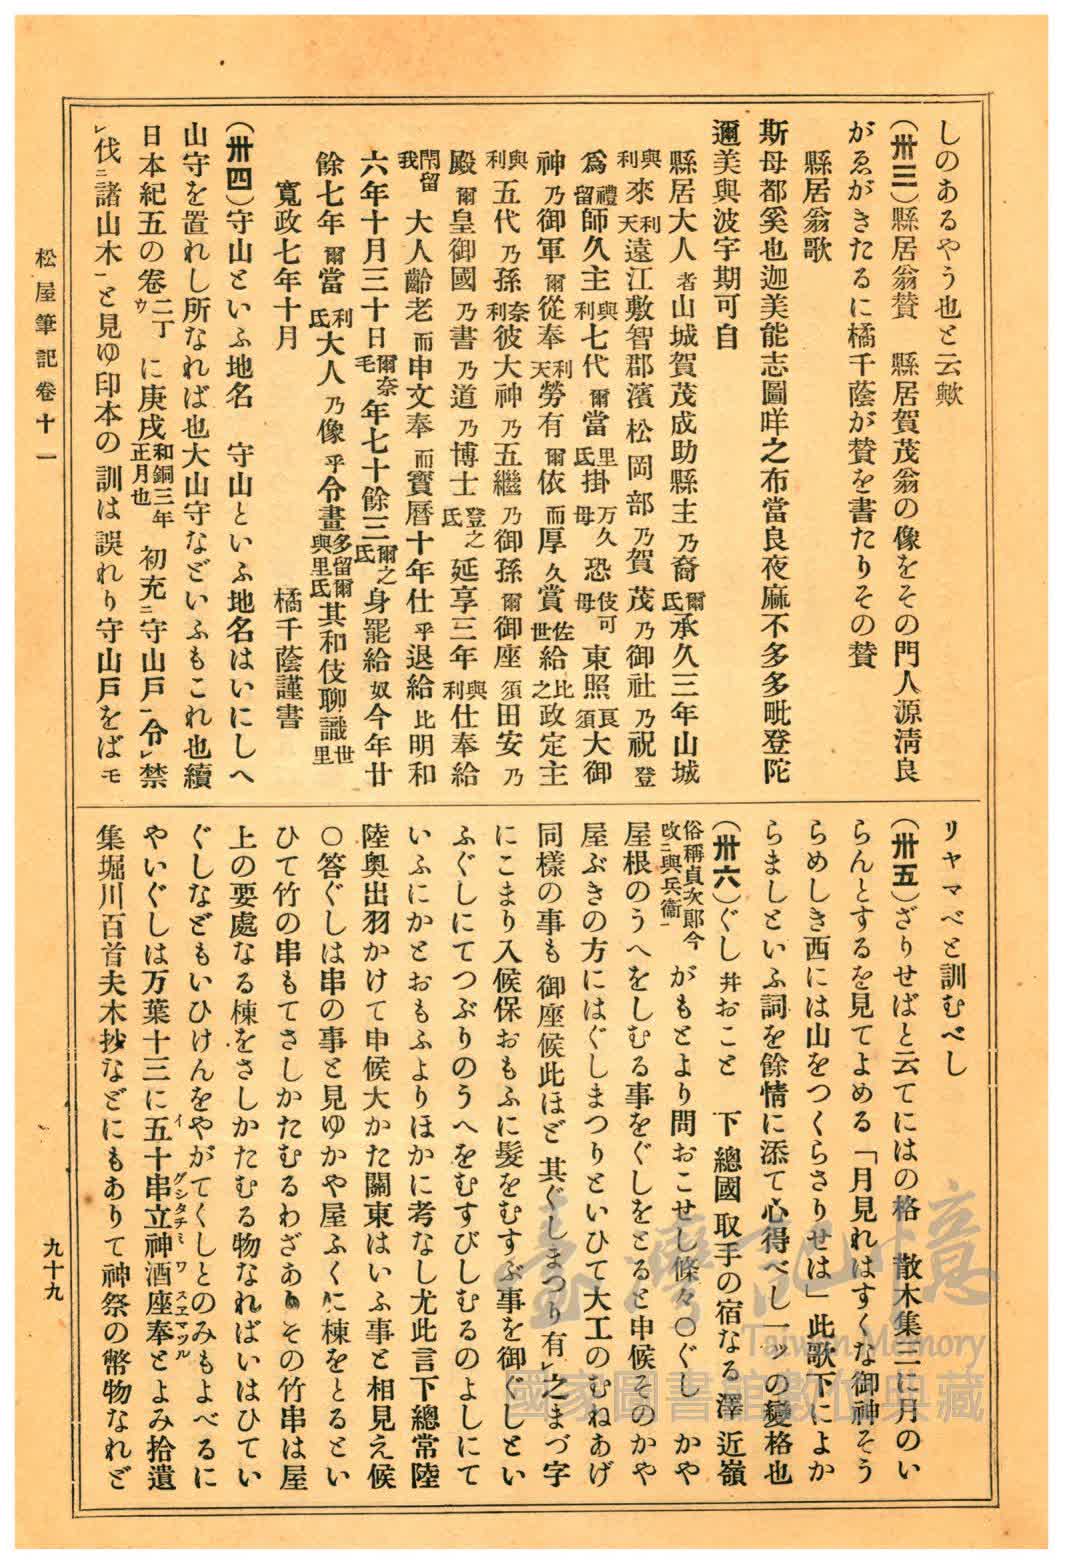 しのあるやう也と云歟
(卅三)縣居翁賛　縣居賀茂翁の像をその門人源淸良
がゑがきたるに橘千蔭が賛を書たりその賛
縣居翁歌
斯母都奚也迦美能志圖咩之布當良夜麻不多多毗登陀
邇美與波宇期可自
縣居大人者山城賀茂成助縣主乃裔爾氐承久三年山城
與利來利天遠江敷智郡濱松岡部乃賀茂乃御社乃祝登
爲禮留師久主與利七代爾當里氐掛万久母恐伎可母東照良須大御
神乃御軍爾從奉利天勞有爾依而厚久賞佐世給比之政定主
與利五代乃孫奈利彼大神乃五繼乃御孫爾御座須田安乃
殿爾皇御國乃書乃道乃博士登之氐延享三年與利仕奉給
閇留我大人齡老而申文奉而寳曆十年仕乎退給比明和
六年十月三十日爾奈毛年七十餘三爾之氐身罷給奴今年廿
餘七年爾當利氐大人乃像乎令畫多留爾與里氐其和伎聊識世里
寬政七年十月
橘千蔭謹書
(卅四)守山といふ地名　守山といふ地名はいにしへ
山守を置れし所なれば也大山守などいふもこれ也續
日本紀五の卷二丁ウに庚戌和銅三年正月也初充ニ守山戸一令レ禁
レ伐ニ諸山木一と見ゆ印本の訓は誤れり守山戸をばモ
リヤマベと訓むべし
(卅五)ざりせばと云てにはの格　散木集三に月のい
らんとするを見てよめる「月見れはすくな御神そう
らめしき西には山をつくらさりせは」此歌下によか
らましといふ詞を餘情に添て心得べし一ッの變格也
(卅六)ぐし幷おこと　下總國取手の宿なる澤近嶺
俗稱貞次郎今改ニ與兵衞一がもとより問おこせし條々○ぐし　かや
屋根のうへをしむる事をぐしをとると申候そのかや
屋ぶきの方にはぐしまつりといひて大工のむねあげ
同樣の事も御座候此ほど其ぐしまつり有レ之まづ字
にこまり入候保おもふに髮をむすぶ事を御ぐしとい
ふぐしにてつぶりのうへをむすびしむるのよしにて
いふにかとおもふよりほかに考なし尤此言下總常陸
陸奧出羽かけて申候大かた關東はいふ事と相見え候
○答ぐしは串の事と見ゆかや屋ふくに棟をとるとい
ひて竹の串もてさしかたむるわざありその竹串は屋
上の要處なる棟をさしかたむる物なればいはひてい
ぐしなどもいひけんをやがてくしとのみもよべるに
やいぐしは万葉十三に五十串立神酒座奉イグシタチミワスヱマツルとよみ拾遺
集堀川百首夫木抄などにもありて神祭の幣物なれど
松屋筆記卷十一
九十九
臺灣記憶
Taiwan Memory
國家圖書館數位典藏